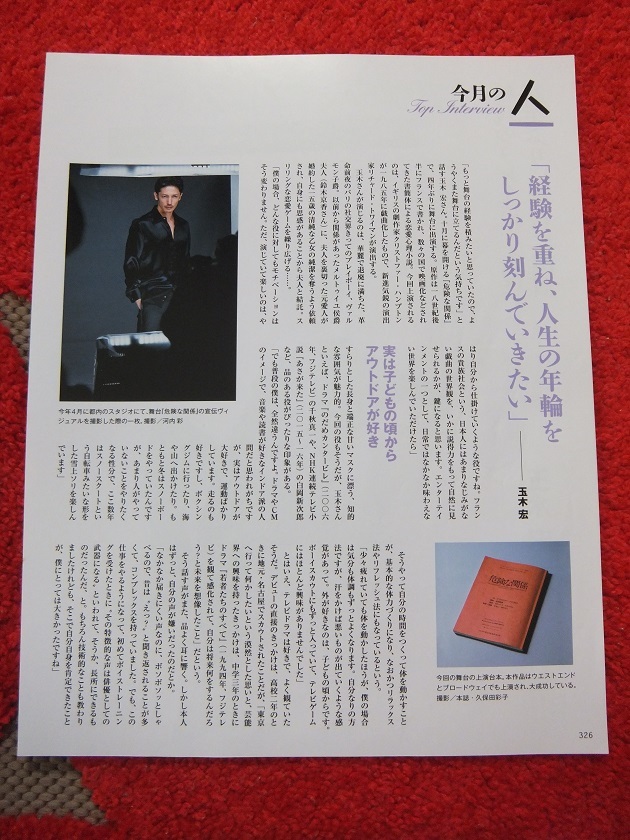 今月の人
Top Interview
「経験を重ね、人生の年輪を
しっかり刻んでいきたい」
玉木 宏
「もっと舞台の経験を積みたいと思っていたので、よ
うやくまた舞台に立てるんだという気持ちです」と
話す玉木 宏さん。十月に幕を開ける『危険な関係』
で、四年ぶりに舞台に出演する。原作は、一八世紀後
半にフランスで書かれ、数々の国で映画化などされ
てきた書簡体による恋愛心理小説。今回上演される
のは、イギリスの劇作家クリストファー・ハンプトン
が一九八五年に戯曲化したもので、新進気鋭の演出
家リチャード・トワイマンが演出する。
玉木さんが演じるのは、華麗で退廃に満ちた、革
命前夜のパリの社交界きってのプレイボーイ、ヴァル
モン子爵。以前から関係があったメルトゥイユ侯爵
夫人（鈴木京香さん）に、夫人を裏切った元愛人が
婚約した一五歳の清純な乙女の純潔を奪うよう依頼
され、自身にも思惑があることから夫人と結託。ス
リリングな恋愛ゲームを繰り広げる……。
「僕の場合、どんな役に対してもモチベーションは
そう変わりません。ただ、演じていて楽しいのは、や
はり自分から仕掛けていくような役ですね。フラン
スの貴族社会という、日本人にはあまりなじみがな
い戯曲の世界観を、いかに説得力をもって自然に見
せられるかが、鍵になると思います。エンターテイ
ンメントの一つとして、日常ではなかなか味わえな
い世界を楽しんでいただけたら」
実は子どもの頃から
アウトドアが好き
すらりとした長身と端正な甘いマスクに漂う、知的
な雰囲気が魅力的。今回の役もそうだが、玉木さん
といえば、ドラマ『のだめカンタービレ』（二〇〇六
年、フジテレビ）の千秋真一や、NHK連続テレビ小
説『あさが来た』（二〇一五〜一六年）の白岡新次郎
など、品のある役がぴったりな印象がある。
「でも普段の僕は、全然違うんですよ。ドラマやCM
のイメージで、音楽や読書が好きなインドア派の人
間だと思われがちです
が、実はアウトドアが
大好きで、運動ばかり
しています。走るのも
好きですし、ボクシン
グジムに行ったり、海
や山へ出かけたり。も
ともと冬はスノーボー
ドをやっていたんです
が、あまり人がやって
いないことをやりたく
なる性分で、ここ数年
はスノースクートとい
う自転車みたいな形を
した雪上ソリを楽しん
でいます」
そうやって自分の時間をつくって体を動かすこと
が、基本的な体力づくりになり、なおかつリラックス
法やリフレッシュ法にもなっているという。
「少々疲れていても体を動かしたほうが、僕の場合
は気分も体調もずっとよくなります。自分なりの方
法ですが、汗をかけば悪いものが出ていくような感
覚があって。外が好きなのは、子どもの頃からです。
ボーイスカウトにもずっと入っていて、テレビゲーム
にはほとんど興味がありませんでした」
とはいえ、テレビドラマは好きで、よく観ていた
そうだ。デビューの直接のきっかけは、高校二年のと
きに地元・名古屋でスカウトされたことだが、「東京
へ行って何かしたいという漠然とした思いと、芸能
界への興味を持ったきっかけは、中学三年のときに
ドラマ『若者のすべて』（一九九四年、フジテレ
ビ）を観て感化されて、自分は将来何をするんだろ
う？と未来を想像したこと」だという。
そう話す声がまた、品よく耳に響く。しかし本人
はずっと、自分の声が嫌いだったのだとか。
「なかなか届きにくい声なのに、ボソボソっとしゃ
べるので、昔は、『えっ？』と聞き返されることが多
くて、コンプレックスを持っていました。でも、この
仕事をやるようになって、初めてボイストレーニン
グを受けたときに、その特徴的な声は俳優としての
武器になる、といわれて、そうか、長所にできるも
のだったんだ、と。もちろん技術的なことも教わり
ましたけれども、そこで自分自身を肯定できたこと
が、僕にとっては大きかったですね」
今年4月に都内のスタジオにて、舞台『危険な関係』の宣伝ヴィ
ジュアルを撮影した際の一枚。撮影／河内 彩
危険な関係
今回の舞台の上演台本。本作品はウエストエンド
とブロードウェイでも上演され、大成功している。
撮影／本誌・久保田彩子
326